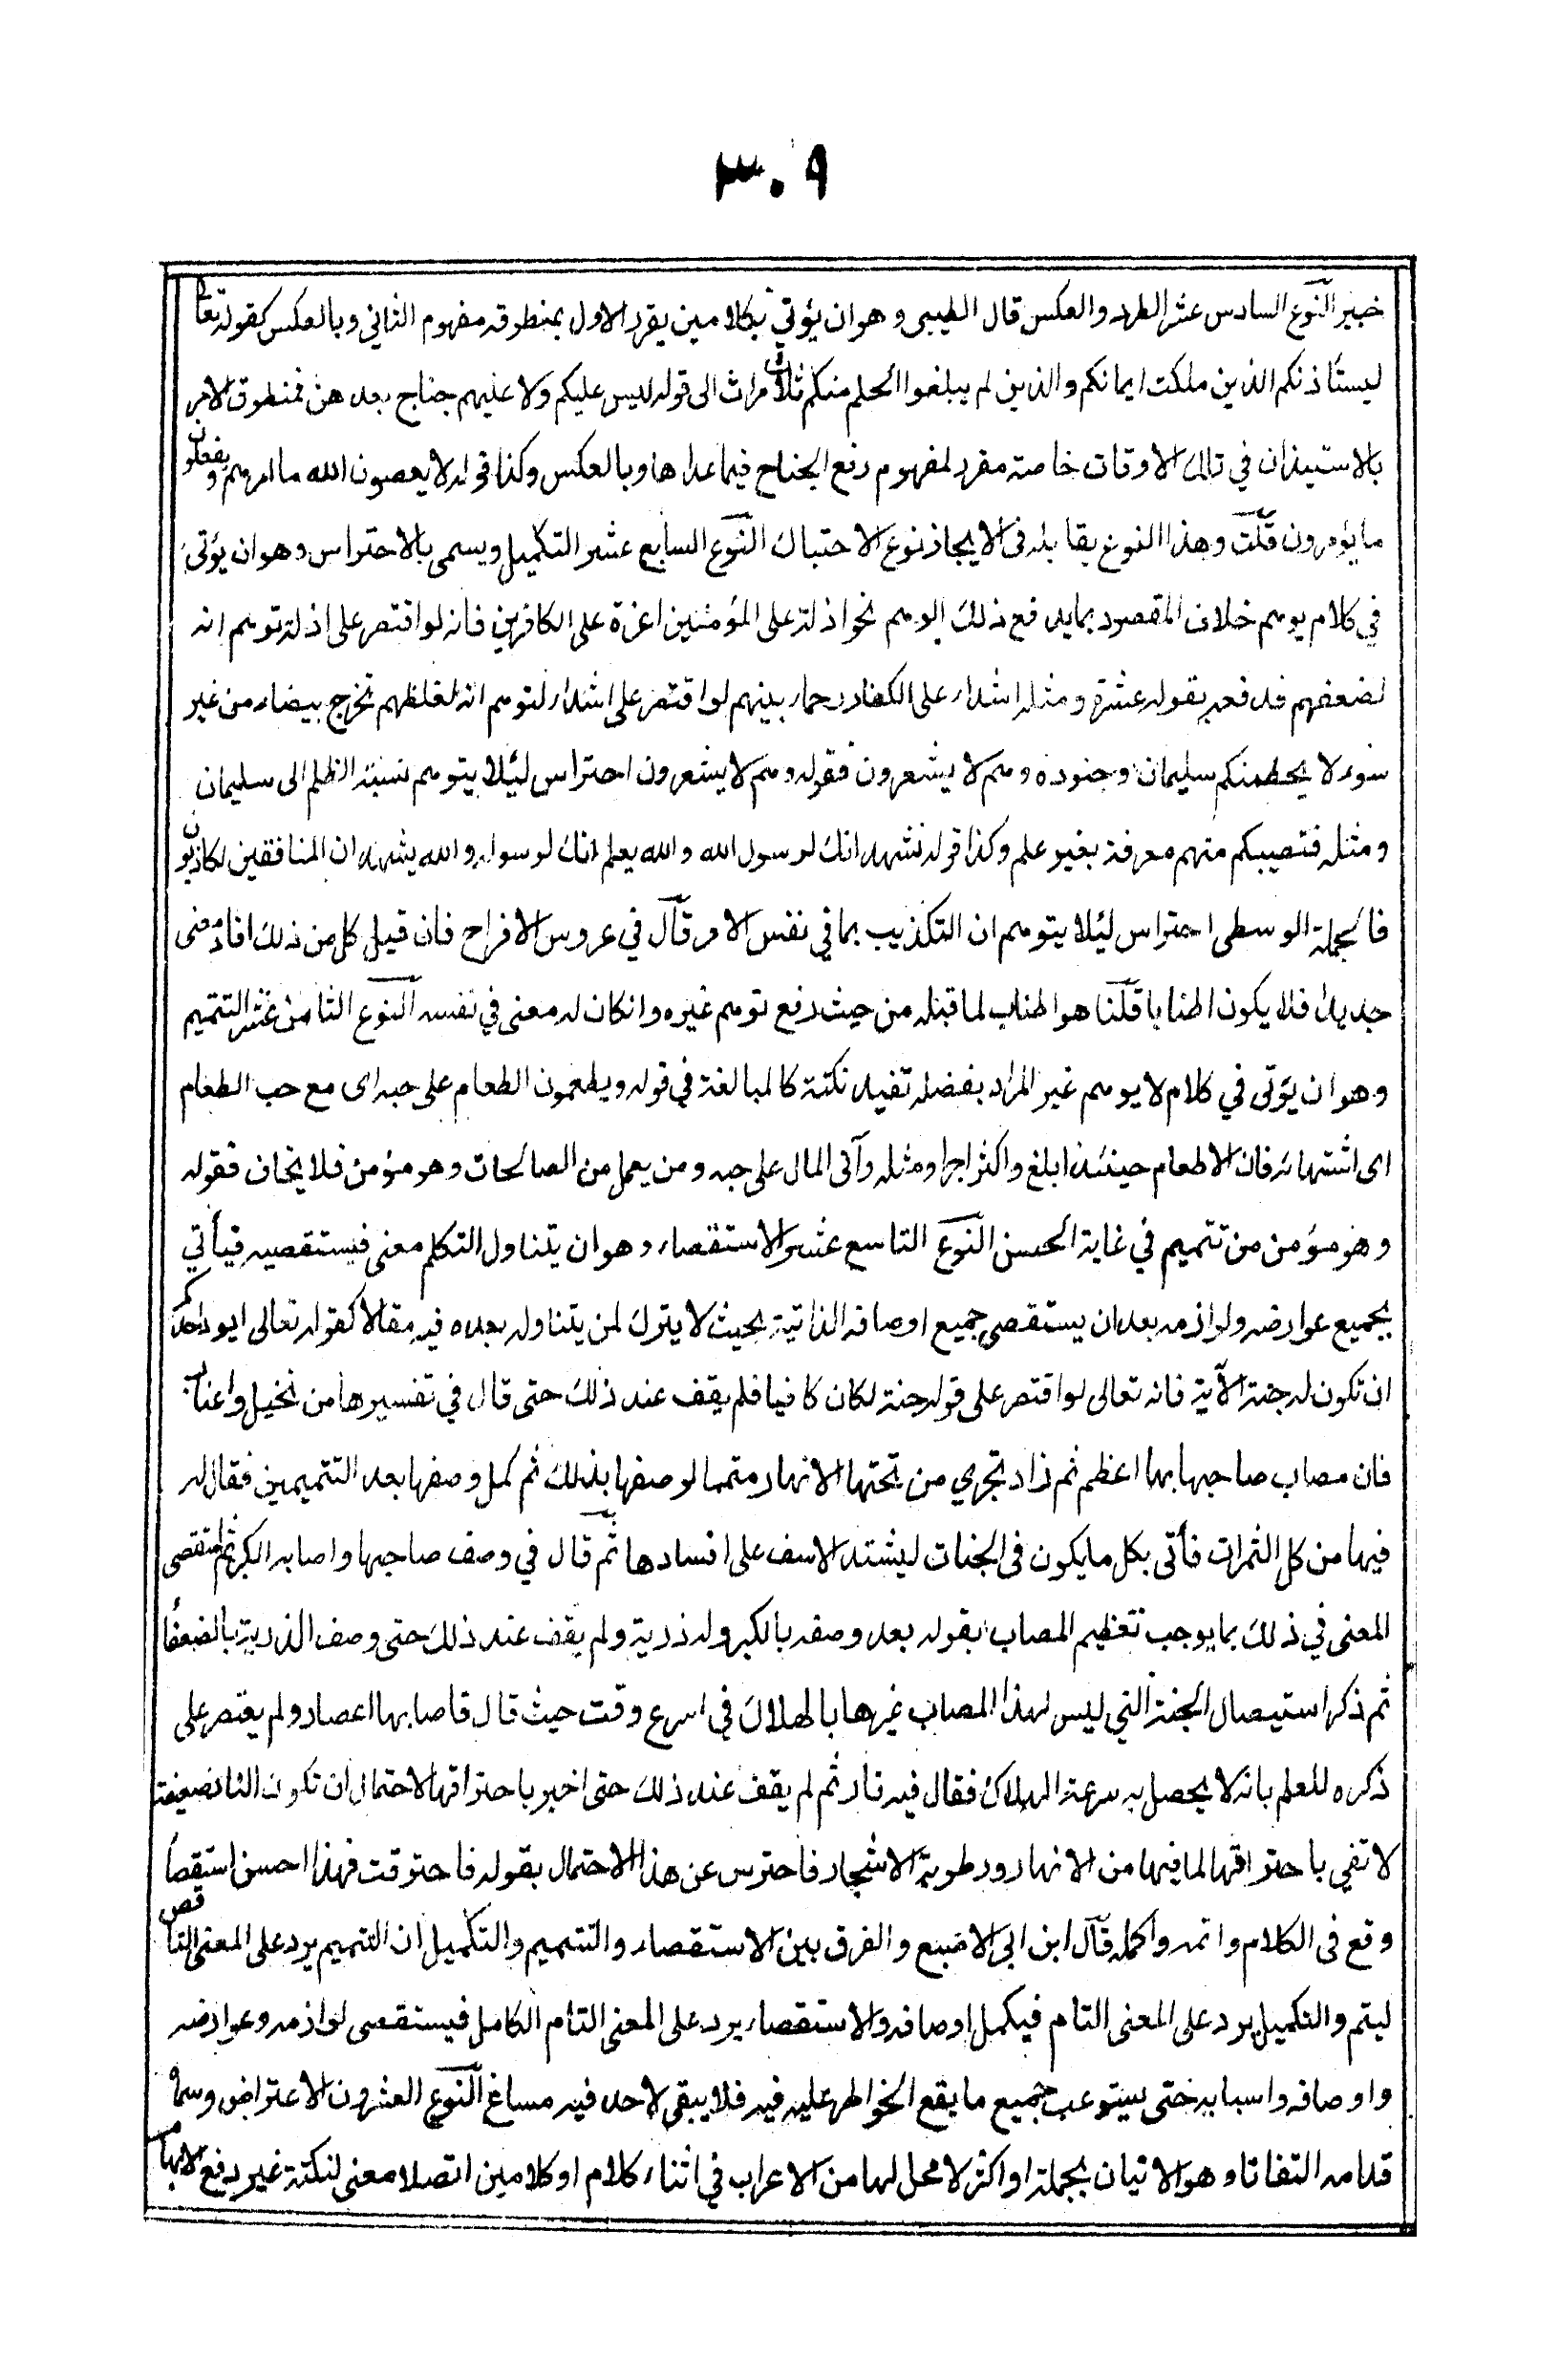 ٣٠٩
خبير النوع السادس عشر الطرد والعكس قال الطيبي وهو ان يؤتي بكلامين يقرر الاول بمنطوقه مفهوم الثاني وبالعكس كقوله تعالى
ليستأذنكم الذين ملكت ايمانكم والذين لم يبلغوا الحلم منكم ثلاث مرات الى قوله ليس عليكم ولا عليهم جناح بعدهن فمنطوق الامر
بالاستيذان في تلك الاوقات خاصة مقرر لمفهوم رفع الجناح فيما عداها وبالعكس وكذا قوله لا يعصون الله ما امرهم ويفعلون
ما يؤمرون قلت وهذا النوع يقابله فى الايجاز نوع الاحتباك النوع السابع عشر التكميل ويسمى بالاحتراس وهو ان يؤتى
في كلام يوهم خلاف المقصود بما يدفع ذلك الوهم نحو اذلة على المؤمنين اعزة على الكافرين فانه لو اقتصر على اذلة توهم انه
لضعفهم فدفعه بقوله عزة ومثله اشداء على الكفار رحماء بينهم لو اقتصر على اشداء لتوهم انه لغلظهم تخرج بيضاء من غير
سوء لا يحطمنكم سليمان وجنوده وهم لا يشعرون فقوله وهم لا يشعرون احتراس لئلا يتوهم نسبة الظلم الى سليمان
ومثله فتصيبكم منهم معرفة بغير علم وكذا قوله نشهد انك لرسول الله والله يعلم انك لرسوله والله يشهد ان المنافقين لكاذبون
فالجملة الوسطى احتراس لئلا يتوهم ان التكذيب بما في نفس الامر قال في عروس الافراح فان قيل كل من ذلك افاد معنى
جديدا فلا يكون اطنابا قلنا هو اطناب لما قبله من حيث رفع توهم غيره وانكان له معنى في نفسه النوع الثامن عشر التتميم
وهو ان يؤتى في كلام لا يوهم غير المراد بفضلة تفيد نكتة كالمبالغة في قوله ويطعمون الطعام على حبه اى مع حب الطعام
اى اشتهائه فان الاطعام حينئذ ابلغ واكثر اجرا ومثله وآتى المال على حبه ومن يعمل من الصالحات وهو مؤمن فلا يخاف فقوله
وهو مؤمن من تتميم في غاية الحسن النوع التاسع عشر الاستقصاء وهو ان يتناول التكلم معنى فيستقصيه فيأتي
بجميع عوارضه ولوازمه بعد ان يستقصى جميع اوصافه الذاتية بحيث لا يترك لمن يتناوله بعده فيه مقالا كقوله تعالى ايود احدكم
ان تكون له جنة الآية فانه تعالى لو اقتصر على قوله جنة لكان كافيا فلم يقف عند ذلك حتى قال في تفسيرها من نخيل واعناب
فان مصاب صاحبها بها اعظم ثم زاد تجري من تحتها الانهار متمما لوصفها بذلك ثم كمل وصفها بعد التتميمين فقال له
فيها من كل الثمرات فأتى بكل ما يكون فى الجنات ليشتد الاسف على افسادها ثم قال في وصف صاحبها واصابه الكبر ثم استقصى
المعنى في ذلك بما يوجب تعظيم المصاب بقوله بعد وصفه بالكبر وله ذرية ولم يقف عند ذلك حتى وصف الذرية بالضعفا
ثم ذكر استيصال الجنة التي ليس لهذا المصاب غيرها بالهلاك في اسرع وقت حيث قال فاصابها اعصار ولم يقتصر على
ذكره للعلم بانه لا يحصل به سرعة الهلاك فقال فيه نار ثم لم يقف عند ذلك حتى اخبر باحتراقها لاحتمال ان تكون النار ضعيفة
لا تفي باحتراقها لما فيها من الانهار ورطوبة الاشجار فاحترس عن هذا الاحتمال بقوله فاحترقت فهذا احسن استقصا
وقع فى الكلام واتمه واكمله قال ابن ابى الاصبع والفرق بين الاستقصاء والتتميم والتكميل ان التتميم يرد على المعنى الناقص
ليتم والتكميل يرد على المعنى التام فيكمل اوصافه والاستقصاء يرد على المعنى التام الكامل فيستقصى لوازمه وعوارضه
واوصافه واسبابه حتى يستوعب جميع ما يقع الخواطر عليه فيه فلا يبقى لاحد فيه مساغ النوع العشرون الاعتراض وسماه
قدامه التفاتا وهو الاتيان بجملة او اكثر لا محل لها من الاعراب في اثناء كلام او كلامين اتصلا معنى لنكتة غير دفع الابهام